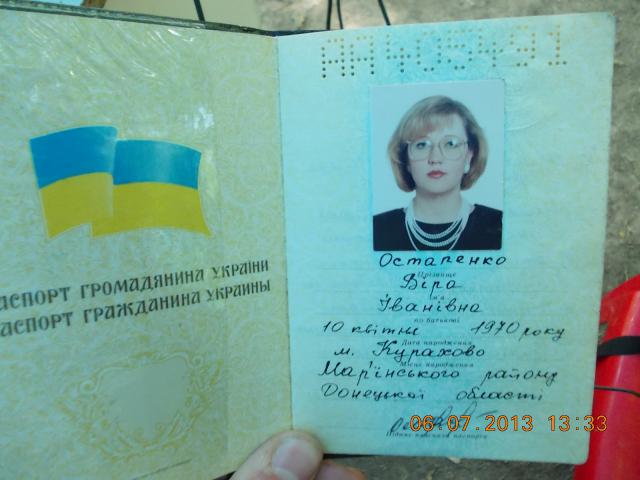 АСПОРТ ГРОМАДЯНИНА УКРАЇНИ
АСПОРТ ГРАЖДАНИНА УКРАИНЫ
АН 405491
Остапенко
Прізвище
Віра
Ім'я
Іванівна
по батькові
10 квітня 1970 року
Дата народження
м. Курахово
Місце народження
Мар'їнського району
Донецької області
Підпис власника паспорта
06.07.2013 13:33